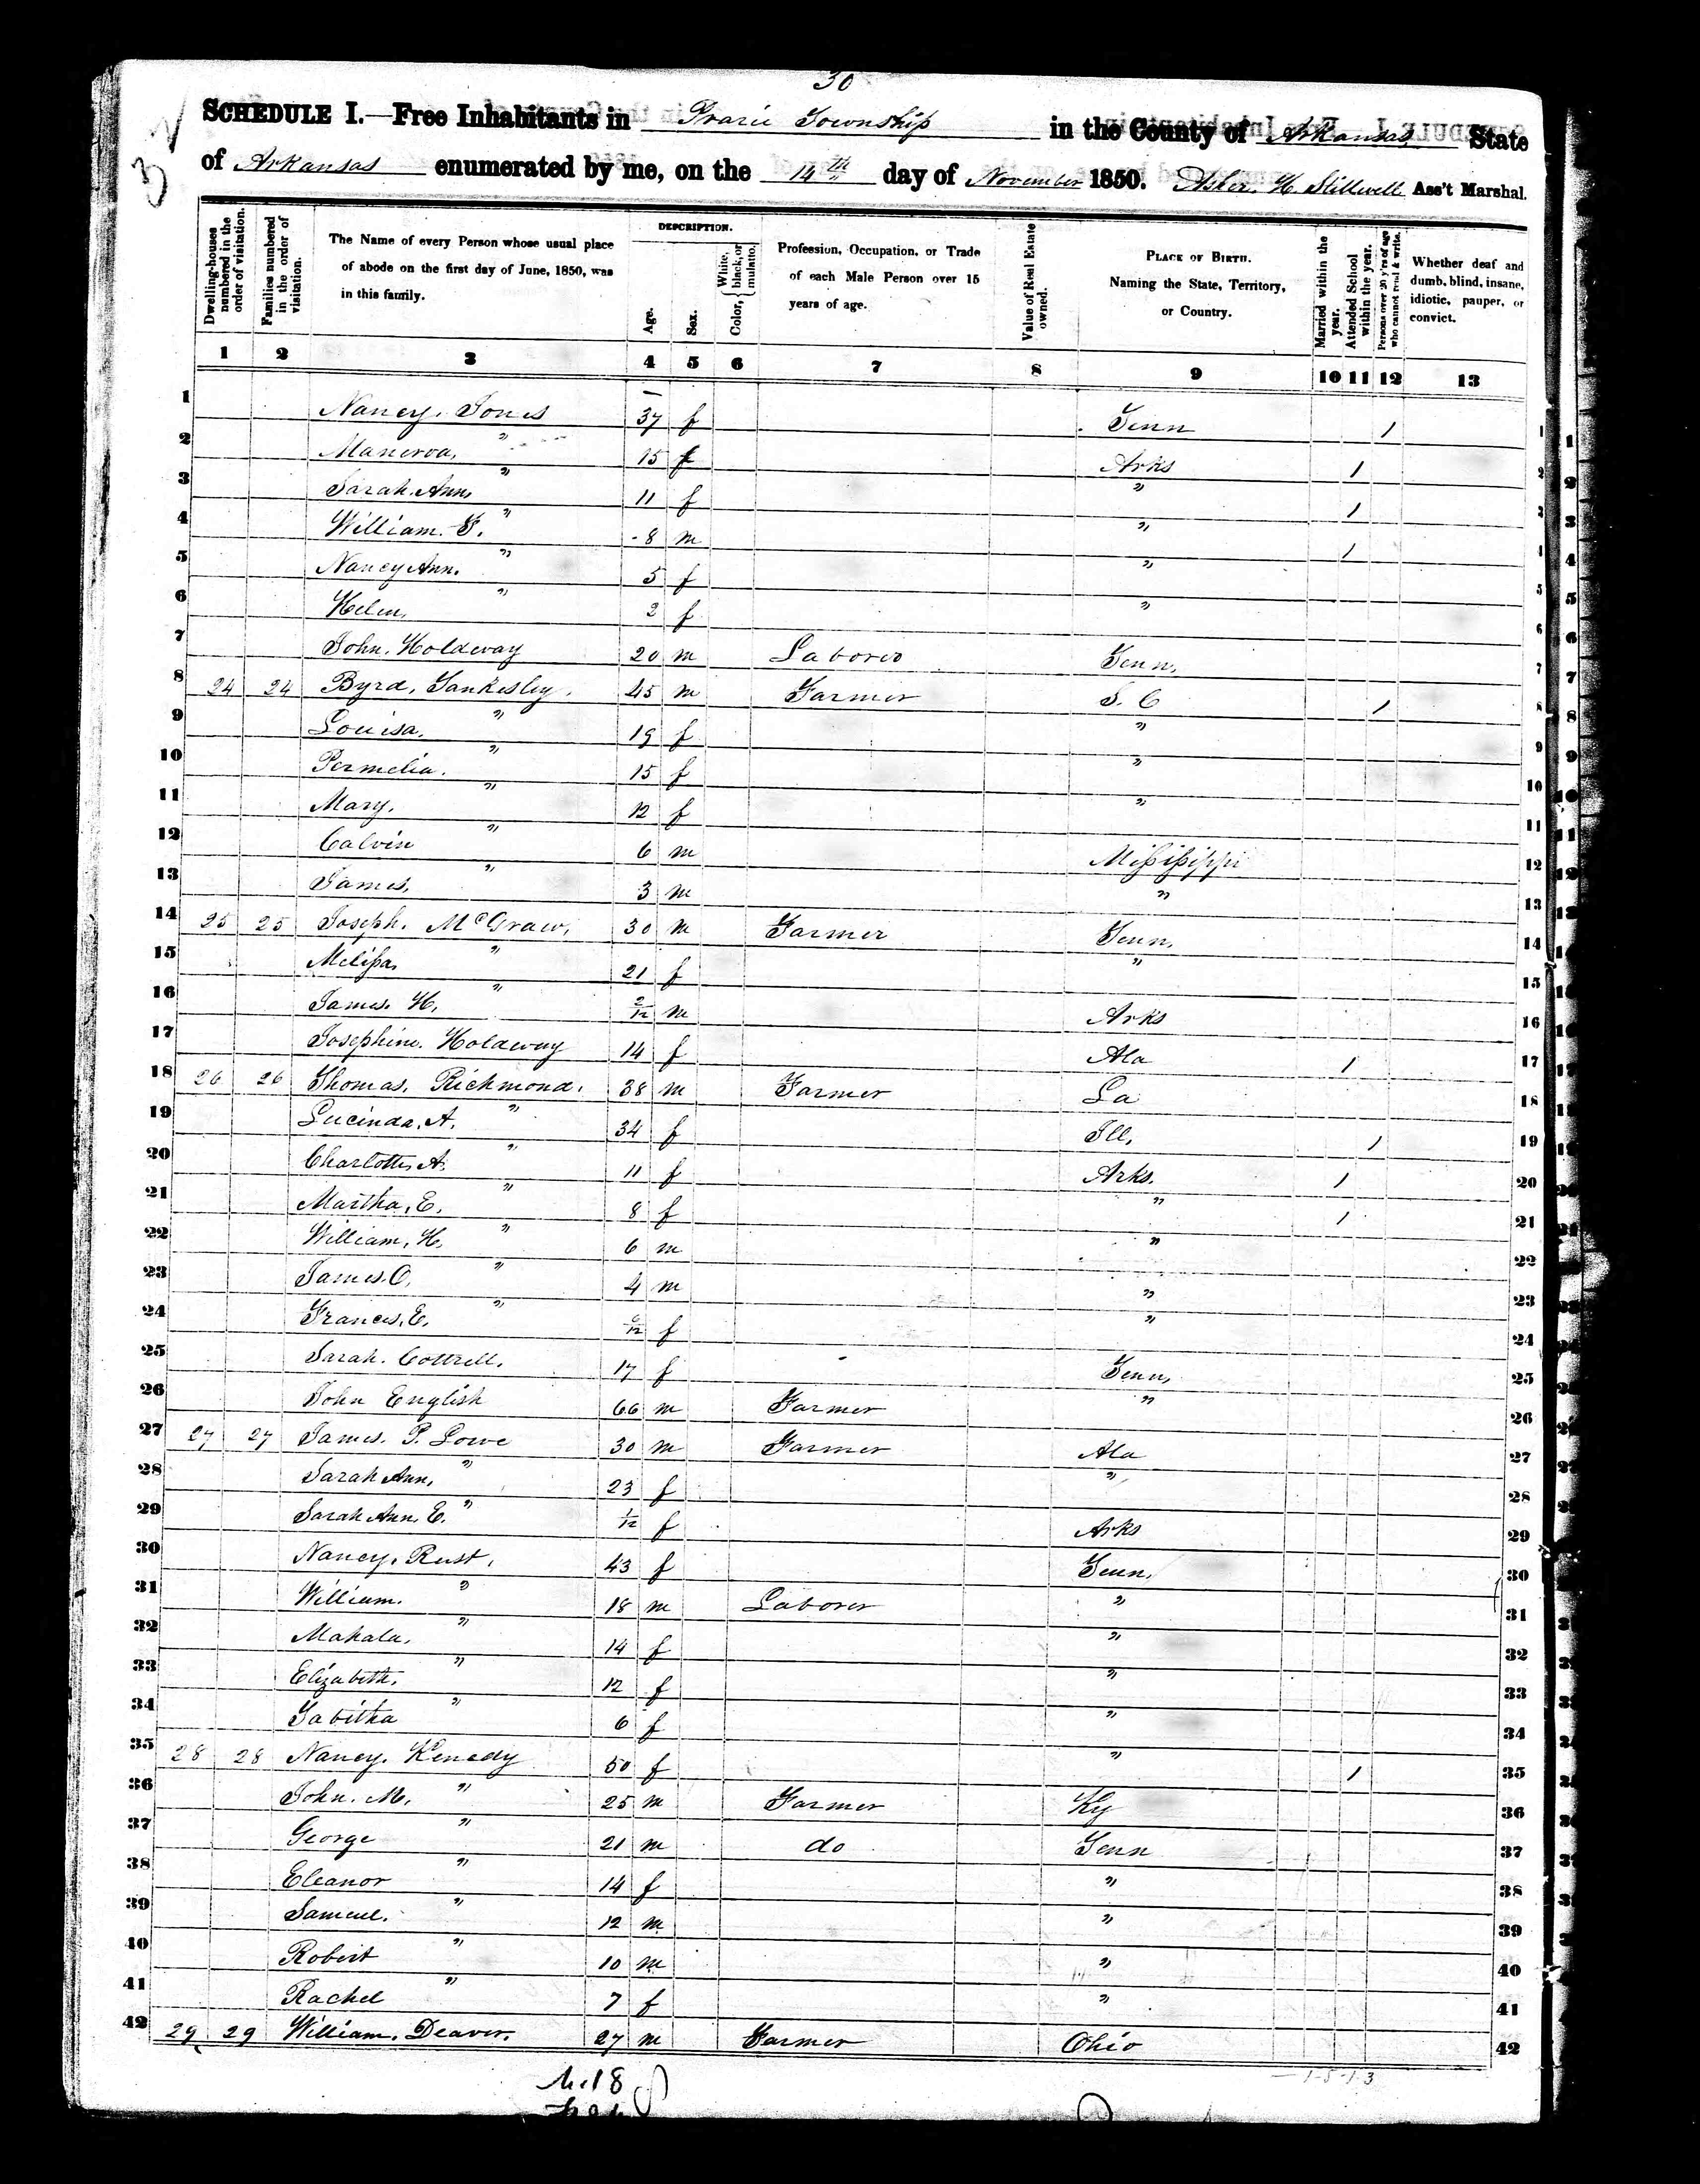 30
SCHEDULE I.—Free Inhabitants in Prarie Township in the County of Arkansas State
of Arkansas enumerated by me, on the 14th day of November 1850. H. Stillwell Ass't Marshal.
Dwelling-houses numbered in the order of visitation. Families numbered in the order of visitation. The Name of every Person whose usual place of abode on the first day of June, 1850, was in this family. DESCRIPTION. Age. Sex. Color, { White, black, or mulatto. Profession, Occupation, or Trade of each Male Person over 15 years of age. Value of Real Estate owned. PLACE OF BIRTH. Naming the State, Territory, or Country. Married within the year. Attended School within the year. Persons over 20 y'rs of age who cannot read & write. Whether deaf and dumb, blind, insane, idiotic, pauper, or convict.
1 2 3 4 5 6 7 8 9 10 11 12 13
1 Nancy. Jones 37 f Tenn 1 1
2 Manerva, " 15 f Arks 1 2
3 Sarah. Ann, " 11 f " 1 3
4 William. T. " 8 m " 1 4
5 Nancy Ann. " 5 f " 5
6 Helen, " 2 f " 6
7 John. Holdway 20 m Laborer Tenn, 7
8 24 24 Byrd, Tankesley. 45 m Farmer S. C 1 8
9 Louisa, " 19 f " 9
10 Permelia. " 15 f " 10
11 Mary, " 12 f " 11
12 Calvin " 6 m Mississippi 12
13 James, " 3 m " 13
14 25 25 Joseph. McGraw, 30 m Farmer Tenn, 14
15 Melissa, " 21 f " 15
16 James. H, " 2/12 m Arks 16
17 Josephine. Holdway 14 f Ala 1 17
18 26 26 Thomas, Richmond. 38 m Farmer La 18
19 Lucinda, A. " 34 f Ill, 1 19
20 Charlotte, A. " 11 f Arks. 1 20
21 Martha, E, " 8 f " 1 21
22 William, H, " 6 m " 22
23 James. O, " 4 m " 23
24 Frances, E, " 6/12 f " 24
25 Sarah. Cottrell. 17 f Tenn, 25
26 John English 66 m Farmer " 26
27 27 27 James. P. Lowe 30 m Farmer Ala 27
28 Sarah Ann, " 23 f " 28
29 Sarah Ann. E. " 1/12 f Arks 29
30 Nancy. Rust, 43 f Tenn, 30
31 William. " 18 m Laborer " 31
32 Mahala, " 14 f " 32
33 Elizabeth, " 12 f " 33
34 Tabitha " 6 f " 34
35 28 28 Nancy. Kenedy 50 f " 1 35
36 John. M. " 25 m Farmer Ky 36
37 George " 21 m do Tenn 37
38 Eleanor " 14 f " 38
39 Samuel. " 12 m " 39
40 Robert " 10 m " 40
41 Rachel " 7 f " 41
42 29 29 William. Deaver. 27 m Farmer Ohio 42